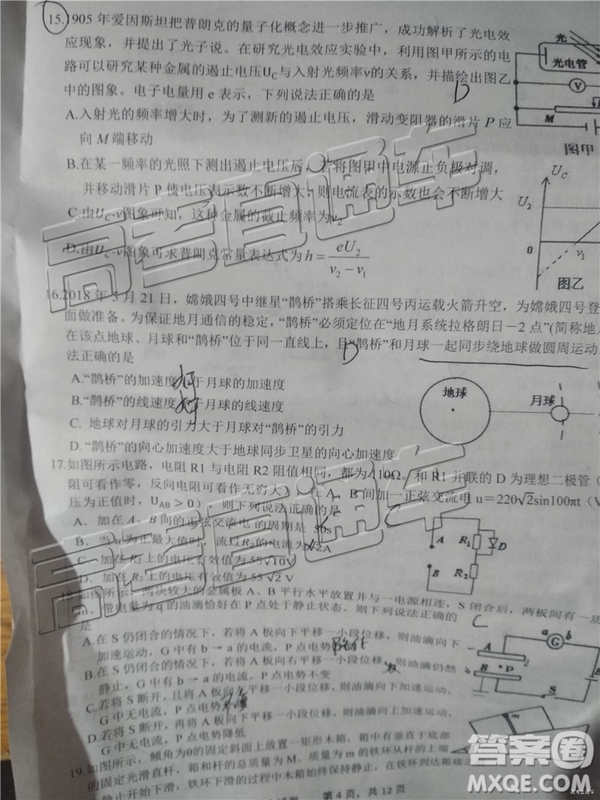 15.1905年爱因斯坦把普朗克的量子化概念进一步推广，成功解析了光电效
应现象，并提出了光子说。在研究光电效应实验中，利用图甲所示的电
路可以研究某种金属的遏止电压UC与入射光频率v的关系，并描绘出图乙
中的图象。电子电量用e表示，下列说法正确的是
A.入射光的频率增大时，为了测新的遏止电压，滑动变阻器的滑片P应
向M端移动
B.在某一频率的光照下测出遏止电压后，若将图甲中电源正负极对调，
并移动滑片P使电压表示数不断增大，则电流表的示数也会不断增大
C.由UC-v图象可知，这种金属的截止频率为v2
D.由UC-v图象可求普朗克常量表达式为h=eU2/(v2-v1)
光
光电管
V
M
图甲
UC
U2
v1
图乙
16.2018年5月21日，嫦娥四号中继星“鹊桥”搭乘长征四号丙运载火箭升空，为嫦娥四号登
面做准备。为保证地月通信的稳定，“鹊桥”必须定位在“地月系统拉格朗日－2点”(简称地
在该点地球、月球和“鹊桥”位于同一直线上，且“鹊桥”和月球一起同步绕地球做圆周运动
法正确的是
D
A.“鹊桥”的加速度 于月球的加速度
B.“鹊桥”的线速度 于月球的线速度
C. 地球对月球的引力大于月球对“鹊桥”的引力
D. “鹊桥”的向心加速度大于地球同步卫星的向心加速度
地球
月球
17.如图所示电路，电阻R1与电阻R2阻值相同，都为10Ω，和R1并联的D为理想二极管（
阻可看作零，反向电阻可看作无穷大），在A、B间加一正弦交流电u=220√2sin100πt（V
压为正值时，UAB＞0），则下列说法正确的是
A．加在A、B间的正弦交流电的周期是
B．当 为正最大时，流过R2的电流为 2A
C．加在R2上的电压有效值为55√10V
D．加在R1上的电压有效值为55√2 V
A
B
R1
D
R2
18.如图所示，两块较大的金属板A、B平行水平放置并与一电源相连，S闭合后，两板间有一质
m、带电量为q的油滴恰好在P点处于静止状态。则下列说法正确的是
C
A.在S仍闭合的情况下，若将A板向下平移一小段位移，则油滴向下
加速运动，G中有b→a的电流，P点电势
B.在S仍闭合的情况下，若将A板向右平移一小段位移，则油滴仍然
静止，G中有b→a的电流，P点电势不变
C.若将S断开，且将A板向左平移一小段位移，则油滴向下运动
G中无电流，P点电势
D.若将S断开，再将A板向下平移一小段位移，则油滴向下运动，
G中无电流，P点电势降低
a
G
b
A
B
P
S
19.如图所示，倾角为θ的固定斜面上放置一矩形木箱，箱中有垂直于底部
的固定光滑直杆，箱和杆的总质量为M，质量为m的铁环从杆的上端
静止开始下滑，铁环下滑的过程中木箱始终保持静止，在铁环
第4页，共12页
高考直通车
高考直通车
答案圈
MXQE.COM